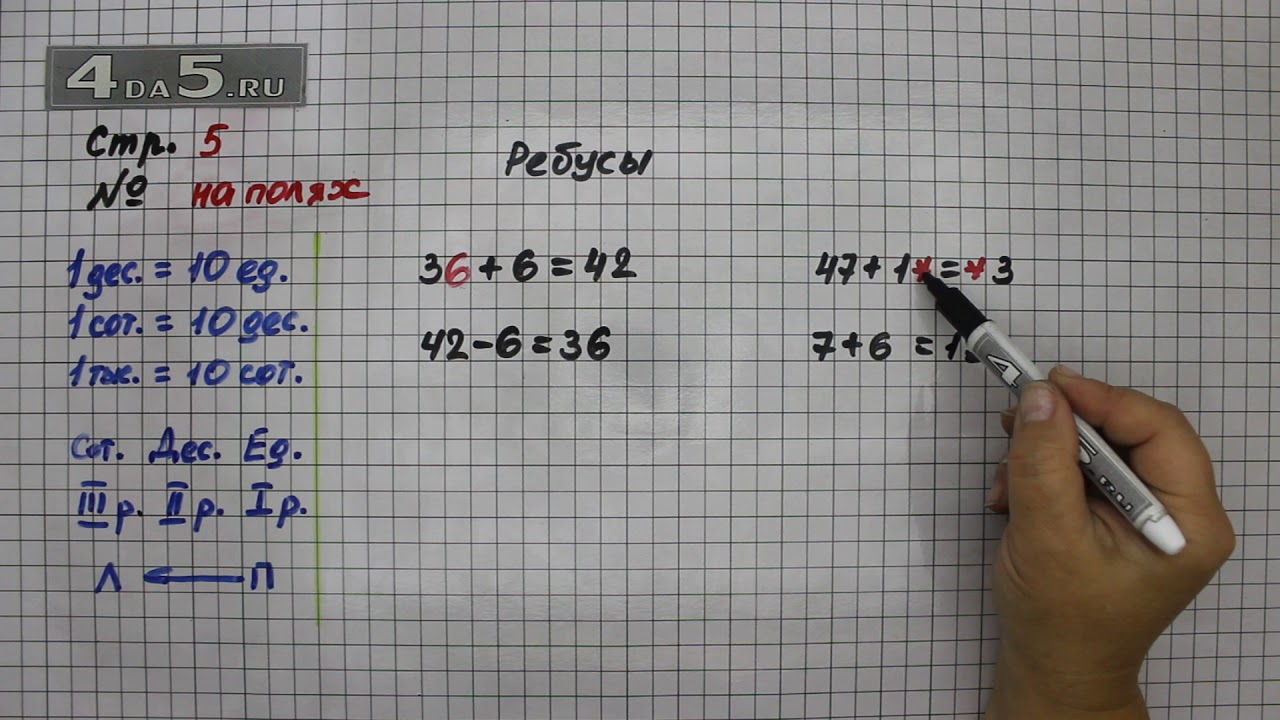 4DA5.RU
Стр. 5
№ на полях
Ребусы
1 дес. = 10 ед.
1 сот. = 10 дес.
1 тыс. = 10 сот.
Сот. Дес. Ед.
III р. II р. I р.
Л ← П
36 + 6 = 42
42 - 6 = 36
47 + 1* = *3
7 + 6 =